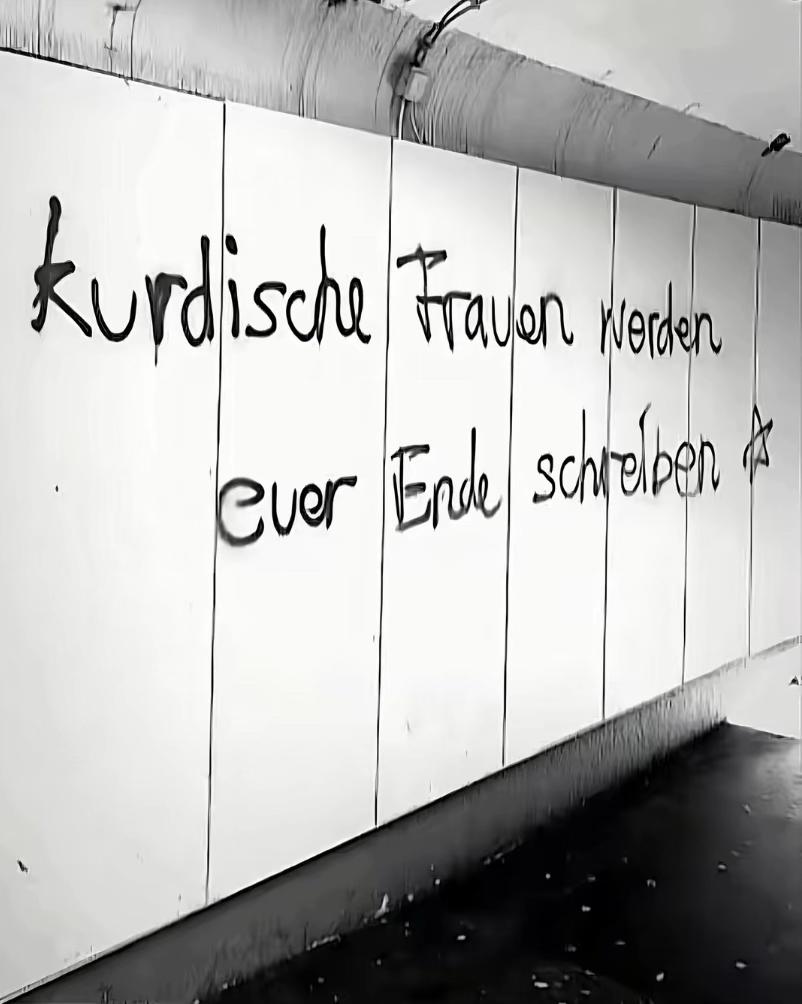 kurdische Frauen werden
euer Ende schreiben ☆